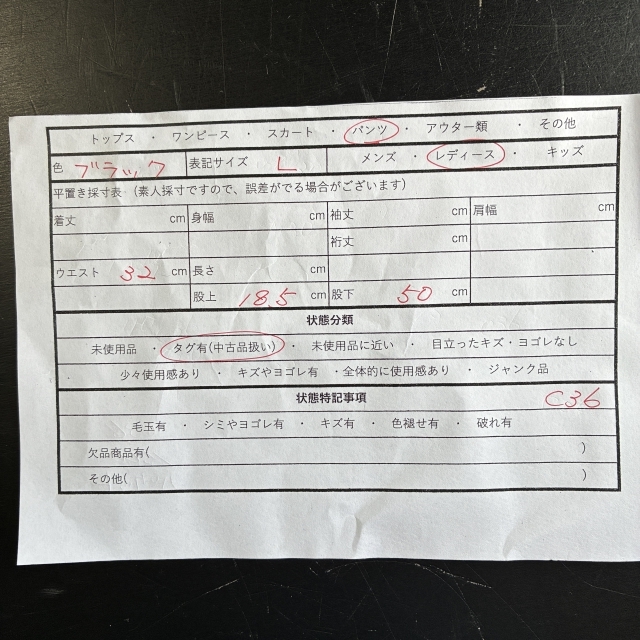 トップス ・ ワンピース ・ スカート ・ パンツ ・ アウター類 ・ その他
色 ブラック 表記サイズ L メンズ ・ レディース ・ キッズ
平置き採寸表 (素人採寸ですので、誤差がでる場合がございます)
着丈 cm 身幅 cm 袖丈 cm 肩幅 cm
裄丈 cm
ウエスト 32 cm 長さ cm
股上 18.5 cm 股下 50 cm
状態分類
未使用品 ・ タグ有(中古品扱い) ・ 未使用品に近い ・ 目立ったキズ・ヨゴレなし
少々使用感あり ・ キズやヨゴレ有 ・全体的に使用感あり ・ ジャンク品
状態特記事項 C36
毛玉有 ・ シミやヨゴレ有 ・ キズ有 ・ 色褪せ有 ・ 破れ有
欠品商品有( )
その他( )